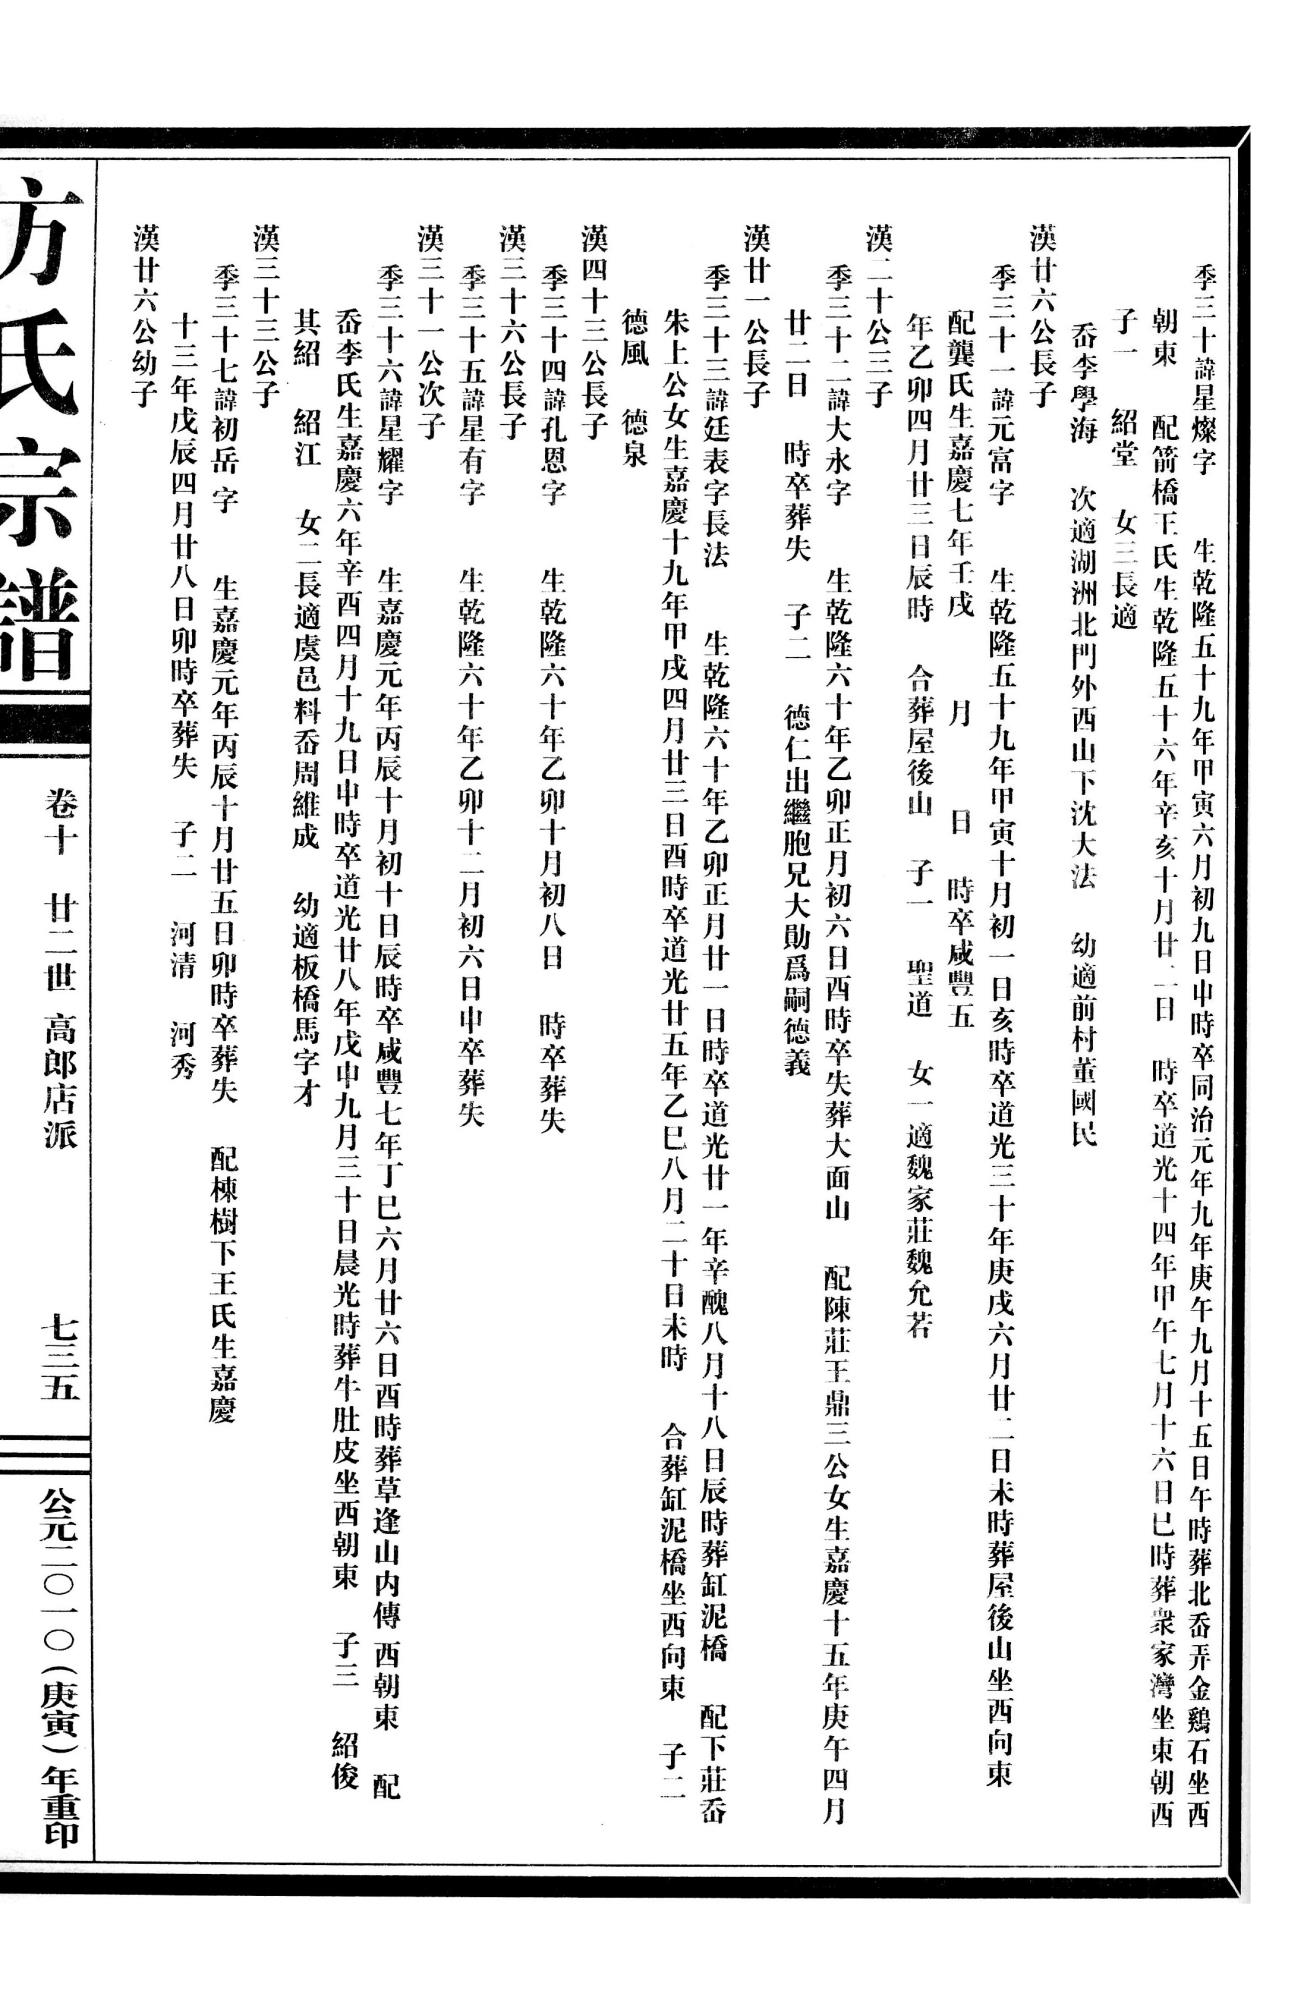 季三十諱星燦字　生乾隆五十九年甲寅六月初九日申時卒同治元年九年庚午九月十五日午時葬北岙弄金鷄石坐西
朝東　配箭橋王氏生乾隆五十六年辛亥十月廿二日　時卒道光十四年甲午七月十六日巳時葬衆家灣坐東朝西
子一　紹堂　女三長適
岙李學海　次適湖洲北門外西山下沈大法　幼適前村董國民
漢廿六公長子
季三十一諱元富字　生乾隆五十九年甲寅十月初一日亥時卒道光三十年庚戌六月廿二日未時葬屋後山坐西向東
配龔氏生嘉慶七年壬戌　月　日　時卒咸豐五
年乙卯四月廿三日辰時　合葬屋後山　子一　聖道　女一適魏家莊魏允若
漢二十公三子
季三十二諱大永字　生乾隆六十年乙卯正月初六日酉時卒失葬大面山　配陳莊王鼎三公女生嘉慶十五年庚午四月
廿二日　時卒葬失　子二　德仁出繼胞兄大勛爲嗣德義
漢廿一公長子
季三十三諱廷表字長法　生乾隆六十年乙卯正月廿一日時卒道光廿一年辛醜八月十八日辰時葬缸泥橋　配下莊岙
朱上公女生嘉慶十九年甲戌四月廿三日酉時卒道光廿五年乙巳八月二十日未時　合葬缸泥橋坐西向東　子二
德風　德泉
漢四十三公長子
季三十四諱孔恩字　生乾隆六十年乙卯十月初八日　時卒葬失
漢三十六公長子
季三十五諱星有字　生乾隆六十年乙卯十二月初六日申卒葬失
漢三十一公次子
季三十六諱星耀字　生嘉慶元年丙辰十月初十日辰時卒咸豐七年丁巳六月廿六日酉時葬草逢山内傳西朝東　配
岙李氏生嘉慶六年辛酉四月十九日申時卒道光廿八年戊申九月三十日晨光時葬牛肚皮坐西朝東　子三　紹俊
其紹　紹江　女二長適虞邑料岙周維成　幼適板橋馬字才
漢三十三公子
季三十七諱初岳字　生嘉慶元年丙辰十月廿五日卯時卒葬失　配棟樹下王氏生嘉慶
十三年戊辰四月廿八日卯時卒葬失　子二　河清　河秀
漢廿六公幼子
方氏宗譜
卷十　廿二世　高郎店派
七三五
公元二〇一〇（庚寅）年重印